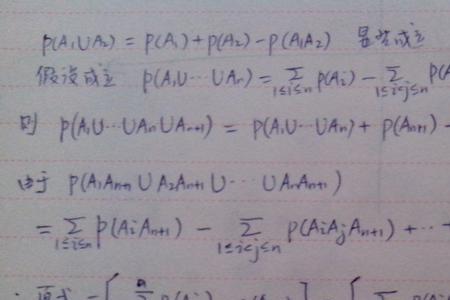 P(A₁∪A₂) = P(A₁)+P(A₂)-P(A₁A₂) 显然成立
假设成立 P(A₁∪···∪Aₙ) = ∑_{1≤i≤n} P(Aᵢ) - ∑_{1≤i<j≤n} P(A
则 P(A₁∪···∪Aₙ∪Aₙ₊₁) = P(A₁∪···∪Aₙ) + P(Aₙ₊₁) -
由于 P(A₁Aₙ₊₁∪A₂Aₙ₊₁∪···∪AₙAₙ₊₁)
= ∑_{1≤i≤n} P(AᵢAₙ₊₁) - ∑_{1≤i<j≤n} P(AᵢAⱼAₙ₊₁) + ··· -
∴ 原式 = [